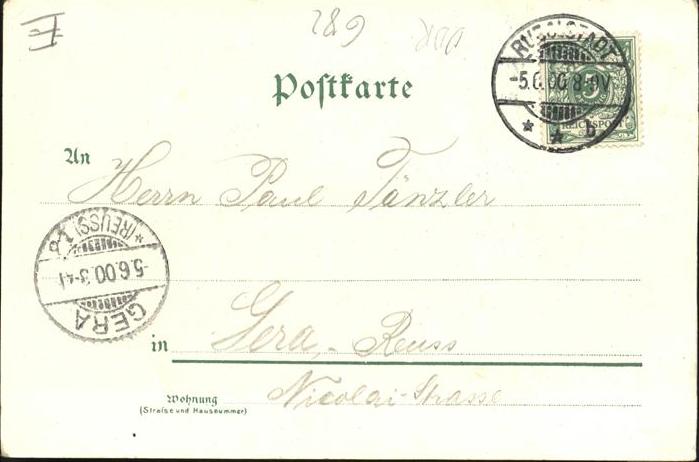 682
DDR
Postkarte
RUDOLSTADT
-5.6.00.8-9V
* * b
5
REICHSPOST
An Herrn Paul Tänzler
*(REUSS) 1
5.6.00.3-4
GERA
in Gera, Reuss
Wohnung Nicolai-Strasse
(Straße und Hausnummer)